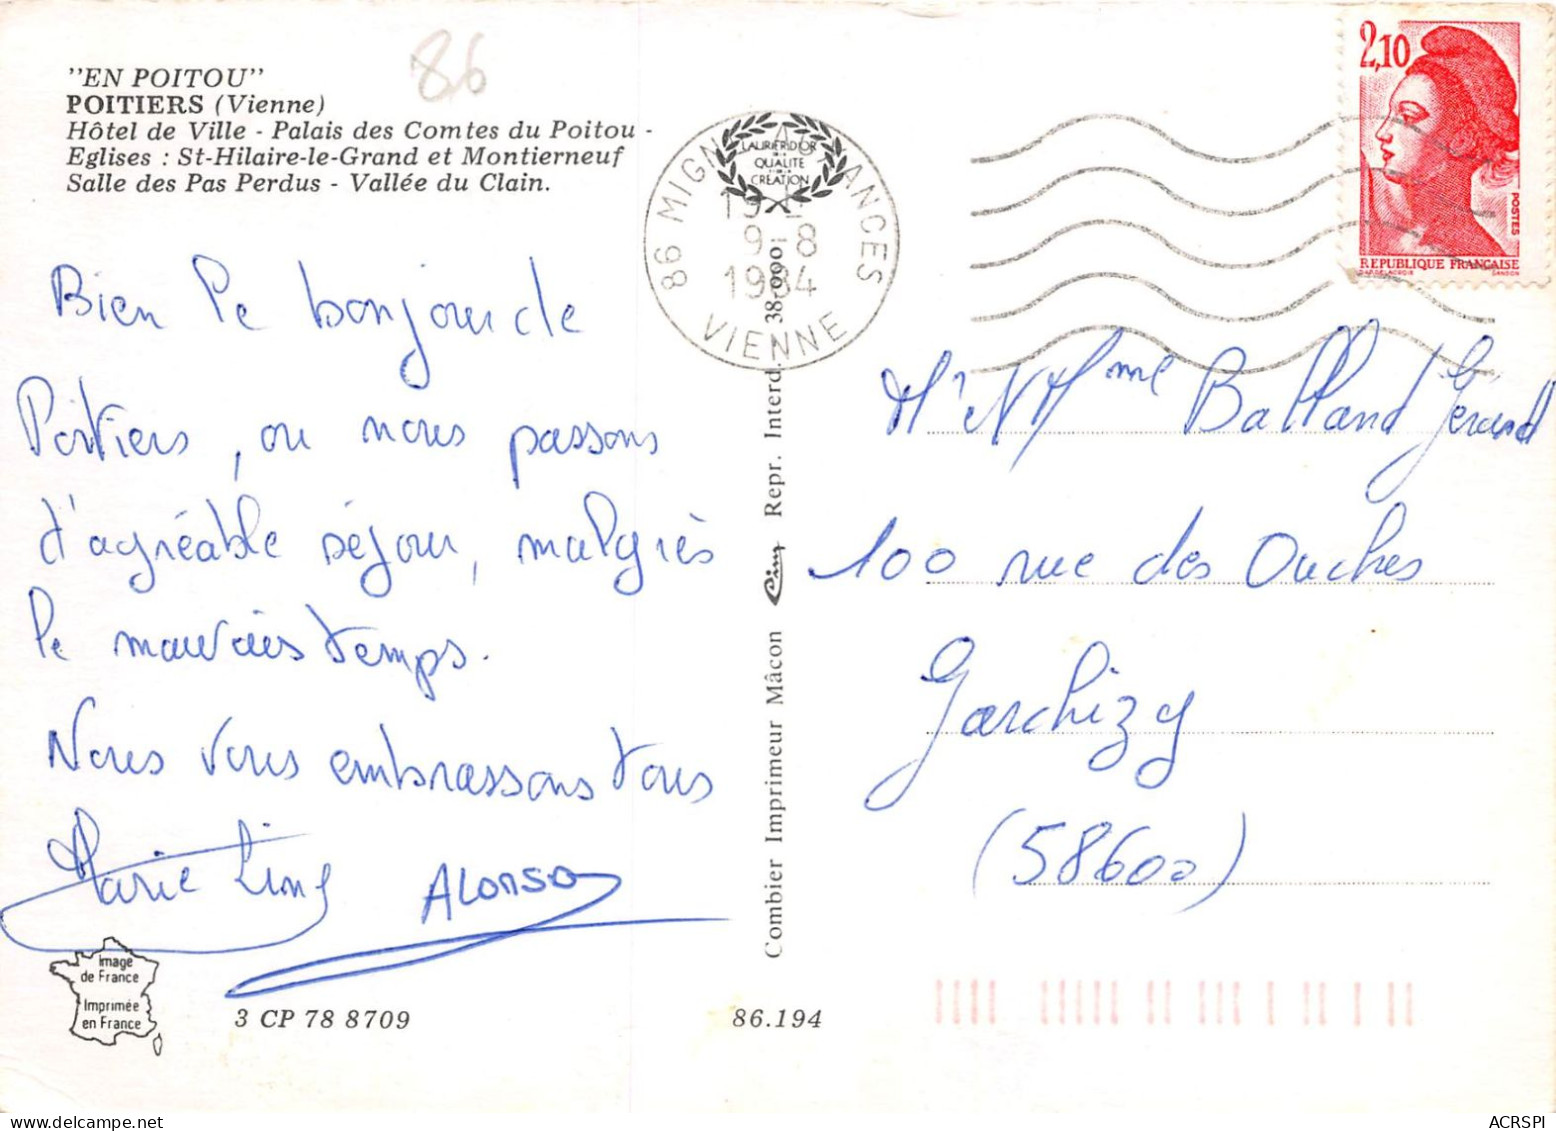 86
"EN POITOU"
POITIERS (Vienne)
Hôtel de Ville - Palais des Comtes du Poitou -
Eglises : St-Hilaire-le-Grand et Montierneuf
Salle des Pas Perdus - Vallée du Clain.
Bien le bonjour de
Poitiers, ou nous passons
d'agréable séjour, malgrès
le mauvais temps.
Nous vous embrassons tous
Marie Line
ALONSO
Image
de France
Imprimée
en France
3 CP 78 8709
86.194
Combier Imprimeur Mâcon
Cim
Repr. Interd. 38.990
LAURIER D'OR
DE LA
QUALITE
CREATION
86 MIGNE AUXANCES
19
9-8
1984
VIENNE
2,10
POSTES
REPUBLIQUE FRANCAISE
D'AP. DELACROIX
GANDON
Balland Gérard
100 rue des Ouches
Garchizy
(58600)
ACRSPI